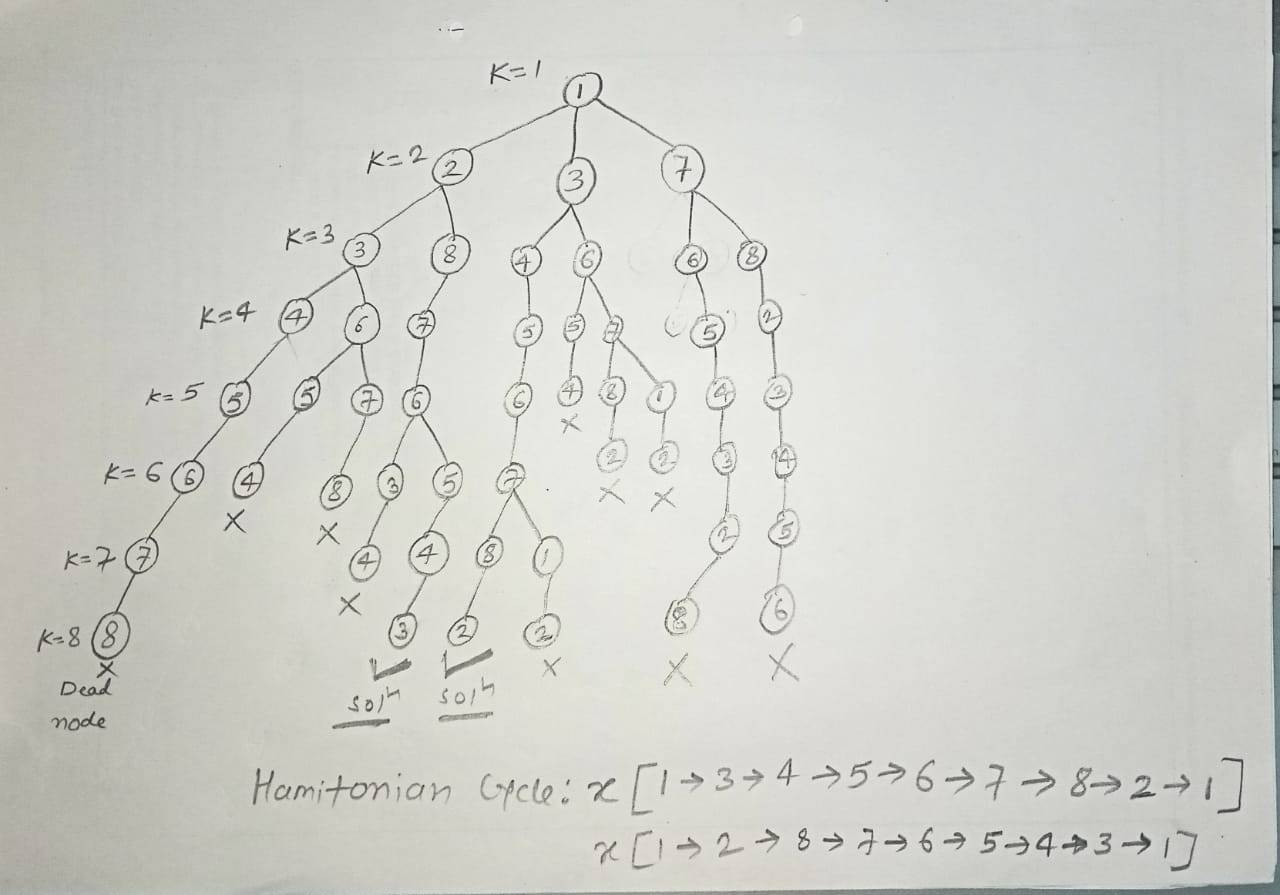 K=1 1
K=2 2 3 7
K=3 3 8 4 6 6 8
K=4 4 6 7 5 5 7 5 2
K=5 5 5 7 6 6 4 8 1 4 3
K=6 6 4 8 3 5 7 2 2 3 4
X X X X X
K=7 7 4 4 8 1 2 5
X
K=8 8 3 2 2 8 6
X ✓ ✓ X X X
Dead soln soln
node
Hamitonian Cycle: x [1→3→4→5→6→7→8→2→1]
x [1→2→8→7→6→5→4→3→1]